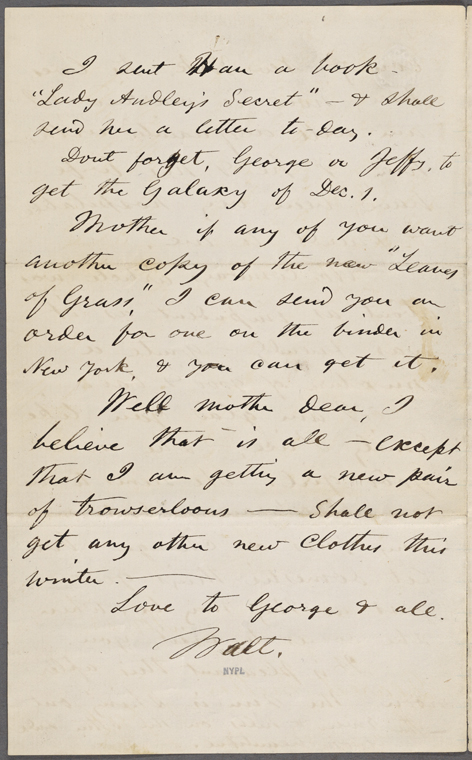 I sent Han a book -
"Lady Audley's Secret" - & shall
send her a letter to-day.
Dont forget, George or Jeff, to
get the Galaxy of Dec. 1.
Mother if any of you want
another copy of the new "Leaves
of Grass," I can send you an
order for one on the binder in
New York, & you can get it.
Well mother dear, I
believe that is all - except
that I am getting a new pair
of trowserloons — Shall not
get any other new clothes this
winter. —
Love to George & all.
Walt.
NYPL